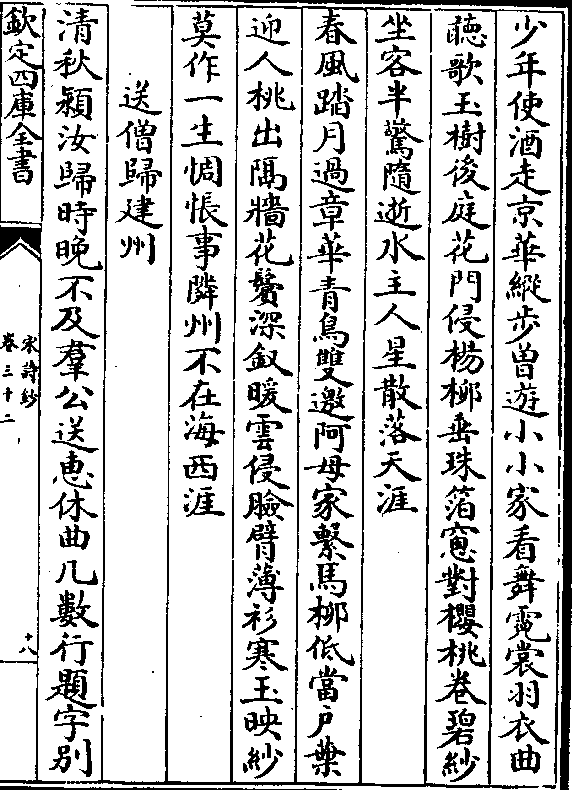 少年使酒走京華縱步曽遊小小家看舞霓裳羽衣曲
聽歌玉樹後庭花門侵楊柳垂珠箔窓對櫻桃卷碧紗
坐客半驚隨逝水主人星散落天涯
春風踏月過章華青鳥雙邀阿母家繫馬柳低當户葉
迎人桃出隔牆花鬢深釵暖雲侵臉臂薄衫寒玉映紗
莫作一生惆悵事隣州不在海西涯
送僧歸建州
清秋潁汝歸時晚不及羣公送惠休曲几數行題字别
欽定四庫全書
宋詩鈔
卷三十二
十八